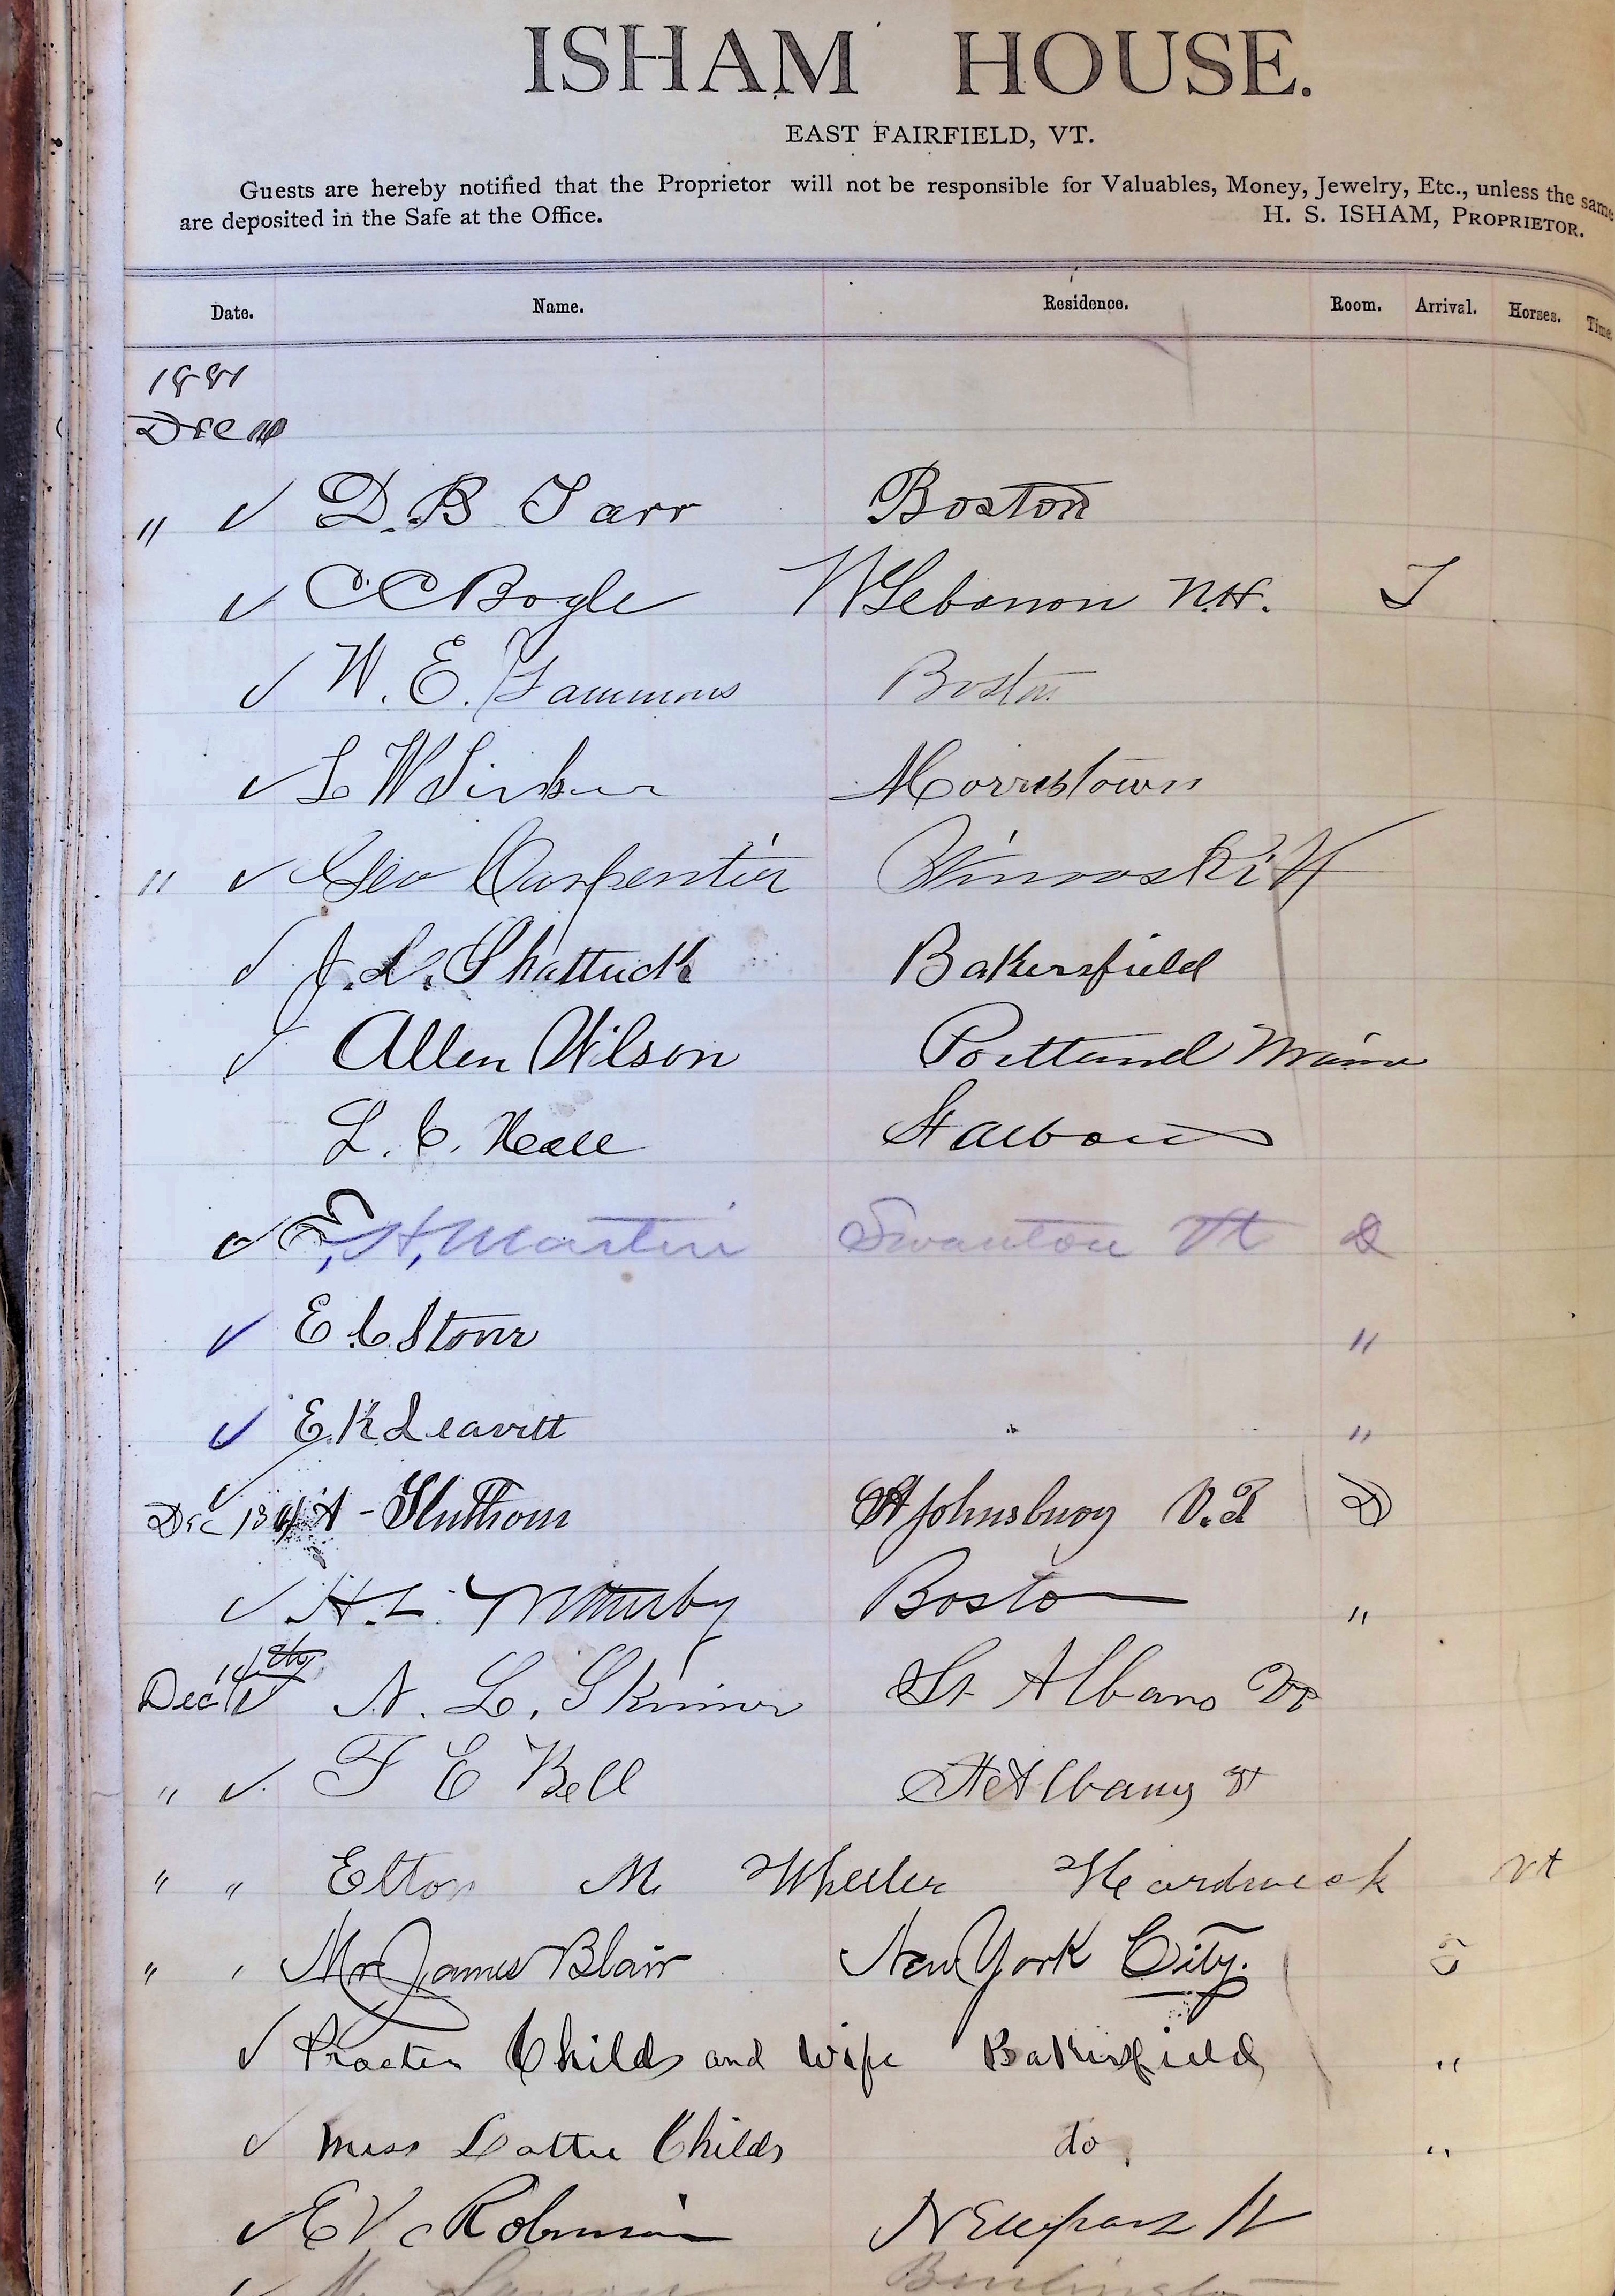 ISHAM HOUSE.
EAST FAIRFIELD, VT.
Guests are hereby notified that the Proprietor will not be responsible for Valuables, Money, Jewelry, Etc., unless the same
are deposited in the Safe at the Office. H. S. ISHAM, PROPRIETOR.
Date. Name. Residence. Room. Arrival. Horses. Time.
1881
Dec
" ✓ D. B Tarr Boston
✓ C. C Bogle W Lebanon N.H. T
✓ W. E. Gammons Boston
✓ L W Morristown
" ✓ Geo Carpentier Winooski Vt
✓ J. L. Shattuck Bakersfield
✓ Allen Wilson Portland Maine
L. C. St Albans
✓ E. H. Martin Swanton Vt D
✓ E. C Stone "
✓ E. K Leavitt " "
Dec 13 ✓ A - St Johnsbury V.T D
✓ H. L Boston "
Dec 14th ✓ N. L. Skinner St Albans Vt
" ✓ F E Bell St Albans Vt
" " Elton M Wheeler Hardwick Vt
" " Mr James Blair New York City.
✓ Procter Childs and wife Bakersfield "
✓ Miss Lottie Childs do "
✓ E V C Robinson Newport Vt
✓ Burlington